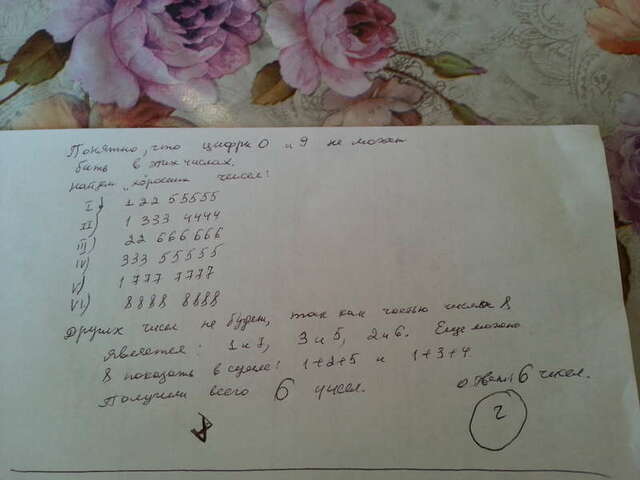 Понятно, что цифры 0 и 9 не может
быть в этих числах.
Найдем "хороших" чисел:
I) 1 22 55555
II) 1 333 4444
III) 22 666666
IV) 333 55555
V) 1 777 7777
VI) 8888 8888
Других чисел не будет, так как частью числа 8
является: 1 и 7, 3 и 5, 2 и 6. Еще можно
8 показать в сумме: 1+2+5 и 1+3+4
Получили всего 6 чисел.
Ответ: 6 чисел.
2